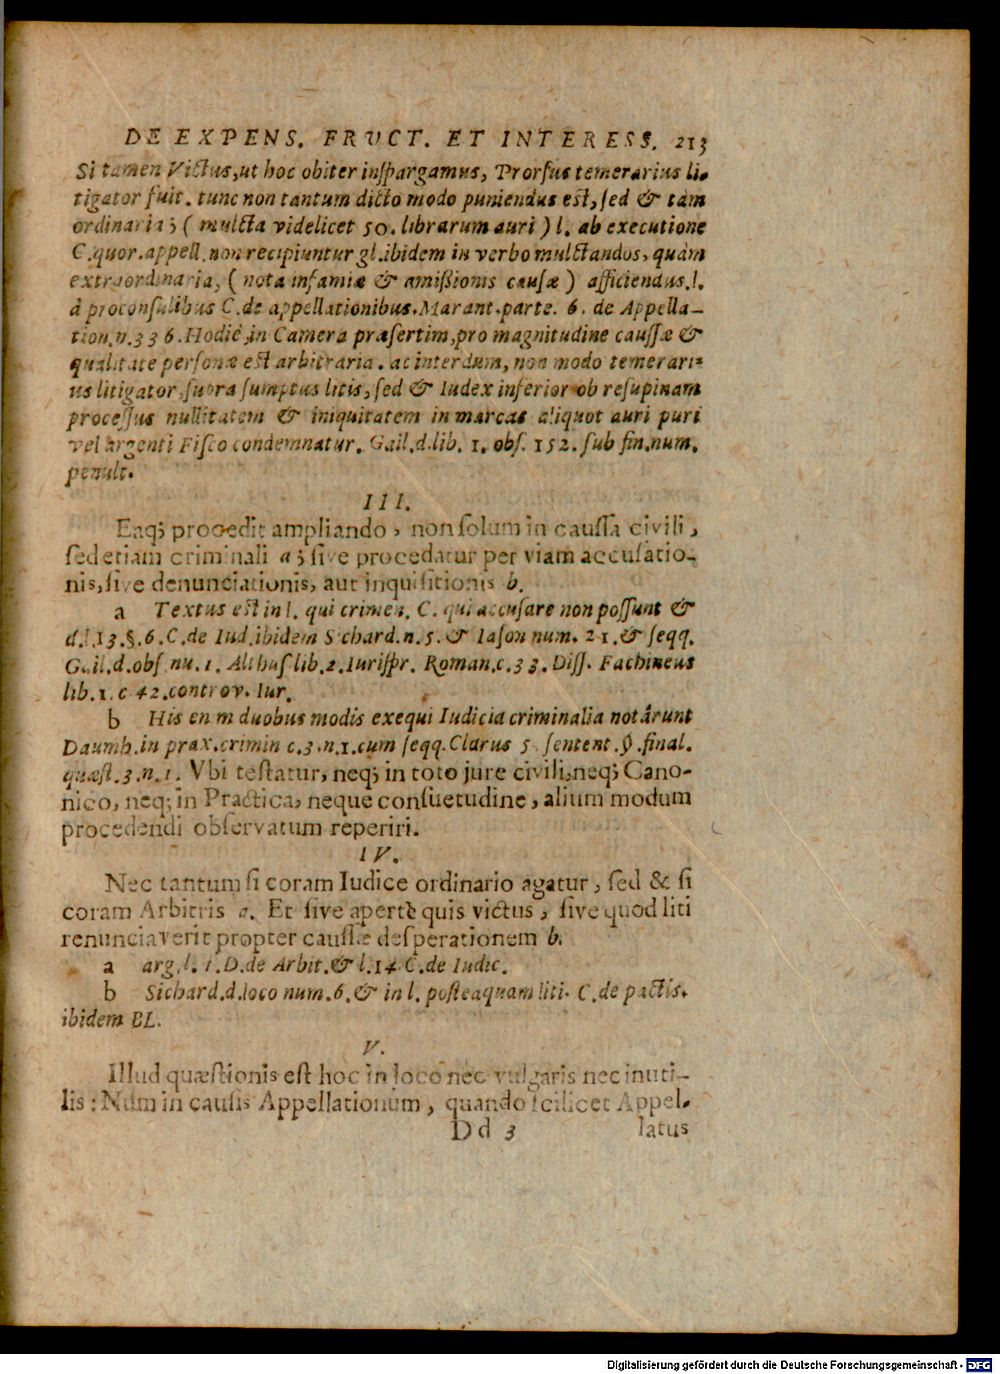 DE EXPENS. FRVCT. ET INTERESS. 213
Si tamen Victus, ut hoc obiter inſpargamus, Prorſus temerarius li-
tigator fuit. tunc non tantum dicto modo puniendus eſt, ſed & tàm
ordinaria; (multta videlicet 50. librarum auri) l. ab executione
C. quor. appell. non recipiuntur gl. ibidem in verbo multtandos, quàm
extraordinaria, (nota infamiæ & amißionis cauſæ) afficiendus. l.
à proconſulibus C. de appellationibus. Marant. parte. 6. de Appella-
tion. n. 336. Hodiè, in Camera præſertim, pro magnitudine cauſſæ &
qualitate perſonæ eſt arbitraria. ac interdum, non modo temerari-
us litigator, ſupra ſumptus litis, ſed & Iudex inferior ob reſupinam
proceſſus nullitatem & iniquitatem in marcas aliquot auri puri
vel argenti Fiſco condemnatur. Gail. d. lib. 1. obſ. 152. ſub fin. num.
penult.
III.
Eaq; procedit ampliando, non ſolum in cauſſa civili,
ſed etiam criminali a; ſive procedatur per viam accuſatio-
nis, ſive denunciationis, aut inquiſitionis b.
a Textus eſt in l. qui crimen. C. qui accuſare non poſſunt &
d. l. 13. §. 6. C. de Iud. ibidem Sichard. n. 5. & Iaſon num. 21. & ſeqq.
Gail. d. obſ. nu. 1. Althuſ lib. 2. Iuriſpr. Roman. c. 33. Diſſ. Fachineus
lib. 1. c 42. controv. Iur.
b His enim duobus modis exequi Iudicia criminalia notârunt
Daumh. in prax. crimin c. 3. n. 1. cum ſeqq. Clarus 5. ſentent. §. final.
quæſt. 3. n. 1. Vbi teſtatur, neq; in toto jure civili, neq; Cano-
nico, neq; in Practica, neque conſuetudine, alium modum
procedendi obſervatum reperiri.
IV.
Nec tantum ſi coram Iudice ordinario agatur, ſed & ſi
coram Arbitris a. Et ſive apertè quis victus, ſive quod liti
renunciaverit propter cauſſæ deſperationem b.
a arg. l. 1. D. de Arbit. & l. 14. C. de Iudic.
b Sichard. d. loco num. 6. & in l. poſteaquam liti. C. de pactis.
ibidem BL.
V.
Illud quæſtionis eſt hoc in loco nec vulgaris nec inuti-
lis: Num in cauſis Appellationum, quando ſcilicet Appel-
Dd 3 latus
Digitalisierung gefördert durch die Deutsche Forschungsgemeinschaft - DFG